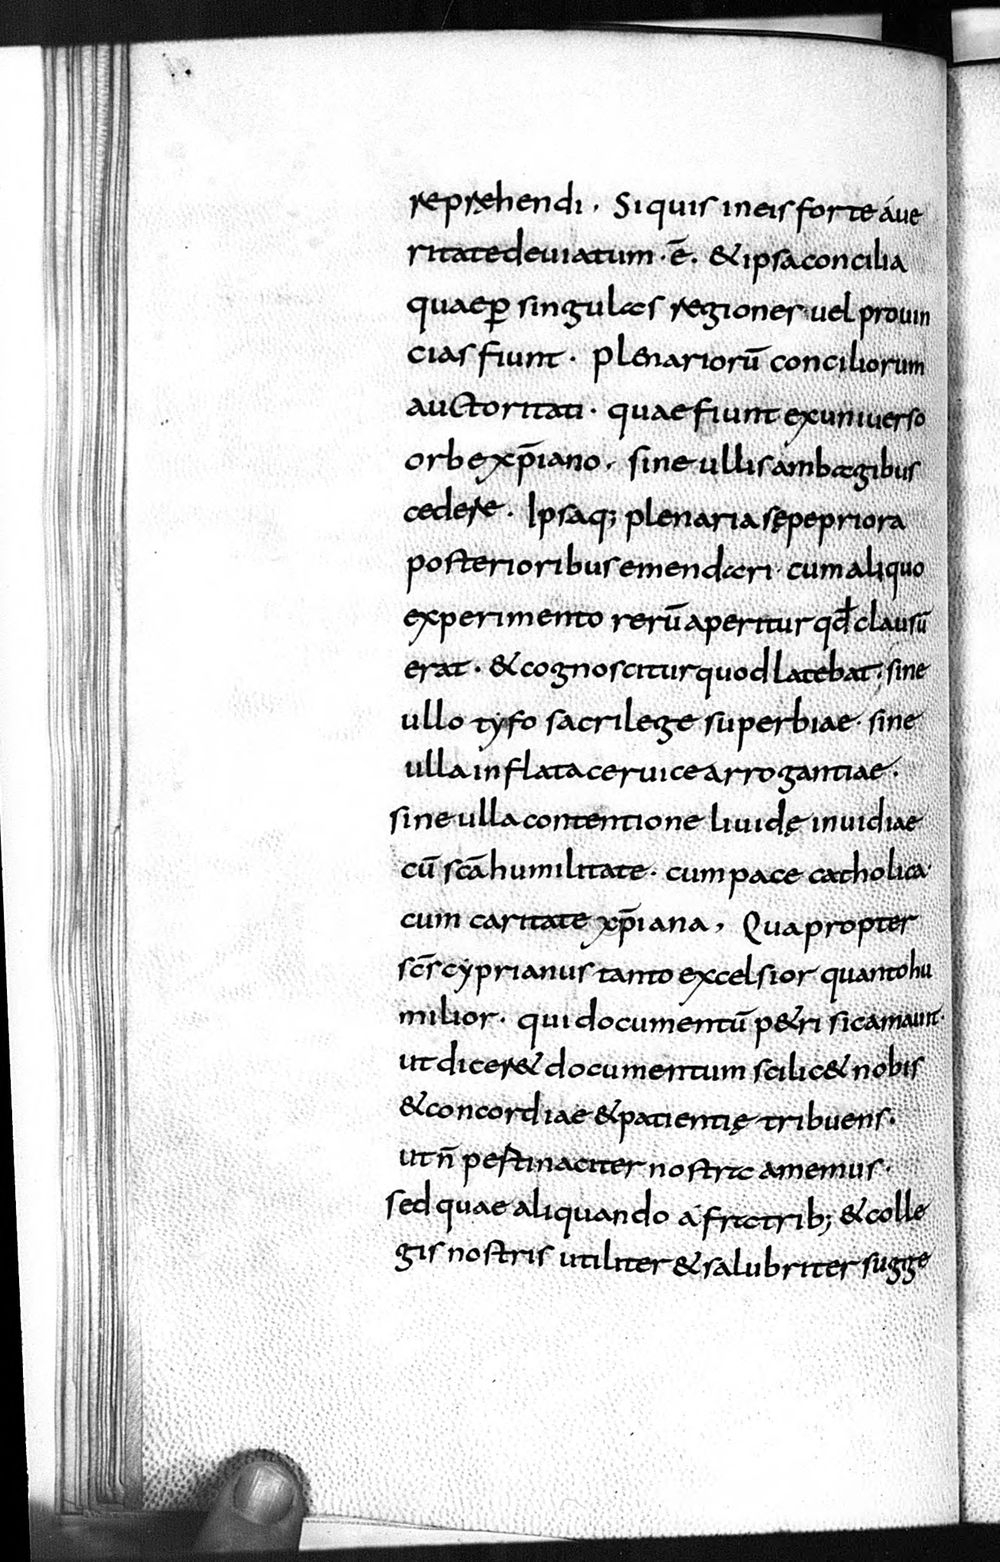 repręhendi. Siquis ineis forte áue
ritatedeuiatum · ē. & ipsaconcilia
quaeꝑ singulas regiones uel prouin
cias fiunt · plenariorū conciliorum
auctoritati · quae fiunt exuniuerso
orbe xp̄iano, sine ullis ambagibus
cedere · Ipsaq; plenaria sępe priora
posterioribus emendari · cum aliquo
experimento rerū aperitur qđ clausū
erat · & cognoscitur quod latebat · sine
ullo tyfo sacrilege superbiae · sine
ulla inflata ceruice arrogantiae ·
sine ulla contentione liuidę inuidiae
cū scā humilitate · cum pace catholica ·
cum caritate xp̄iana, Quapropter
scs̄ cyprianus tanto excelsior quanto hu
milior · qui documentū p&ri sic amauit ·
ut dicer& documentum scilic& nobis
& concordiae & patientię tribuens ·
ut n̄ pestinaciter nostra amemus ·
sed quae aliquando a fratrib; & colle
gis nostris utiliter & salubriter sugge